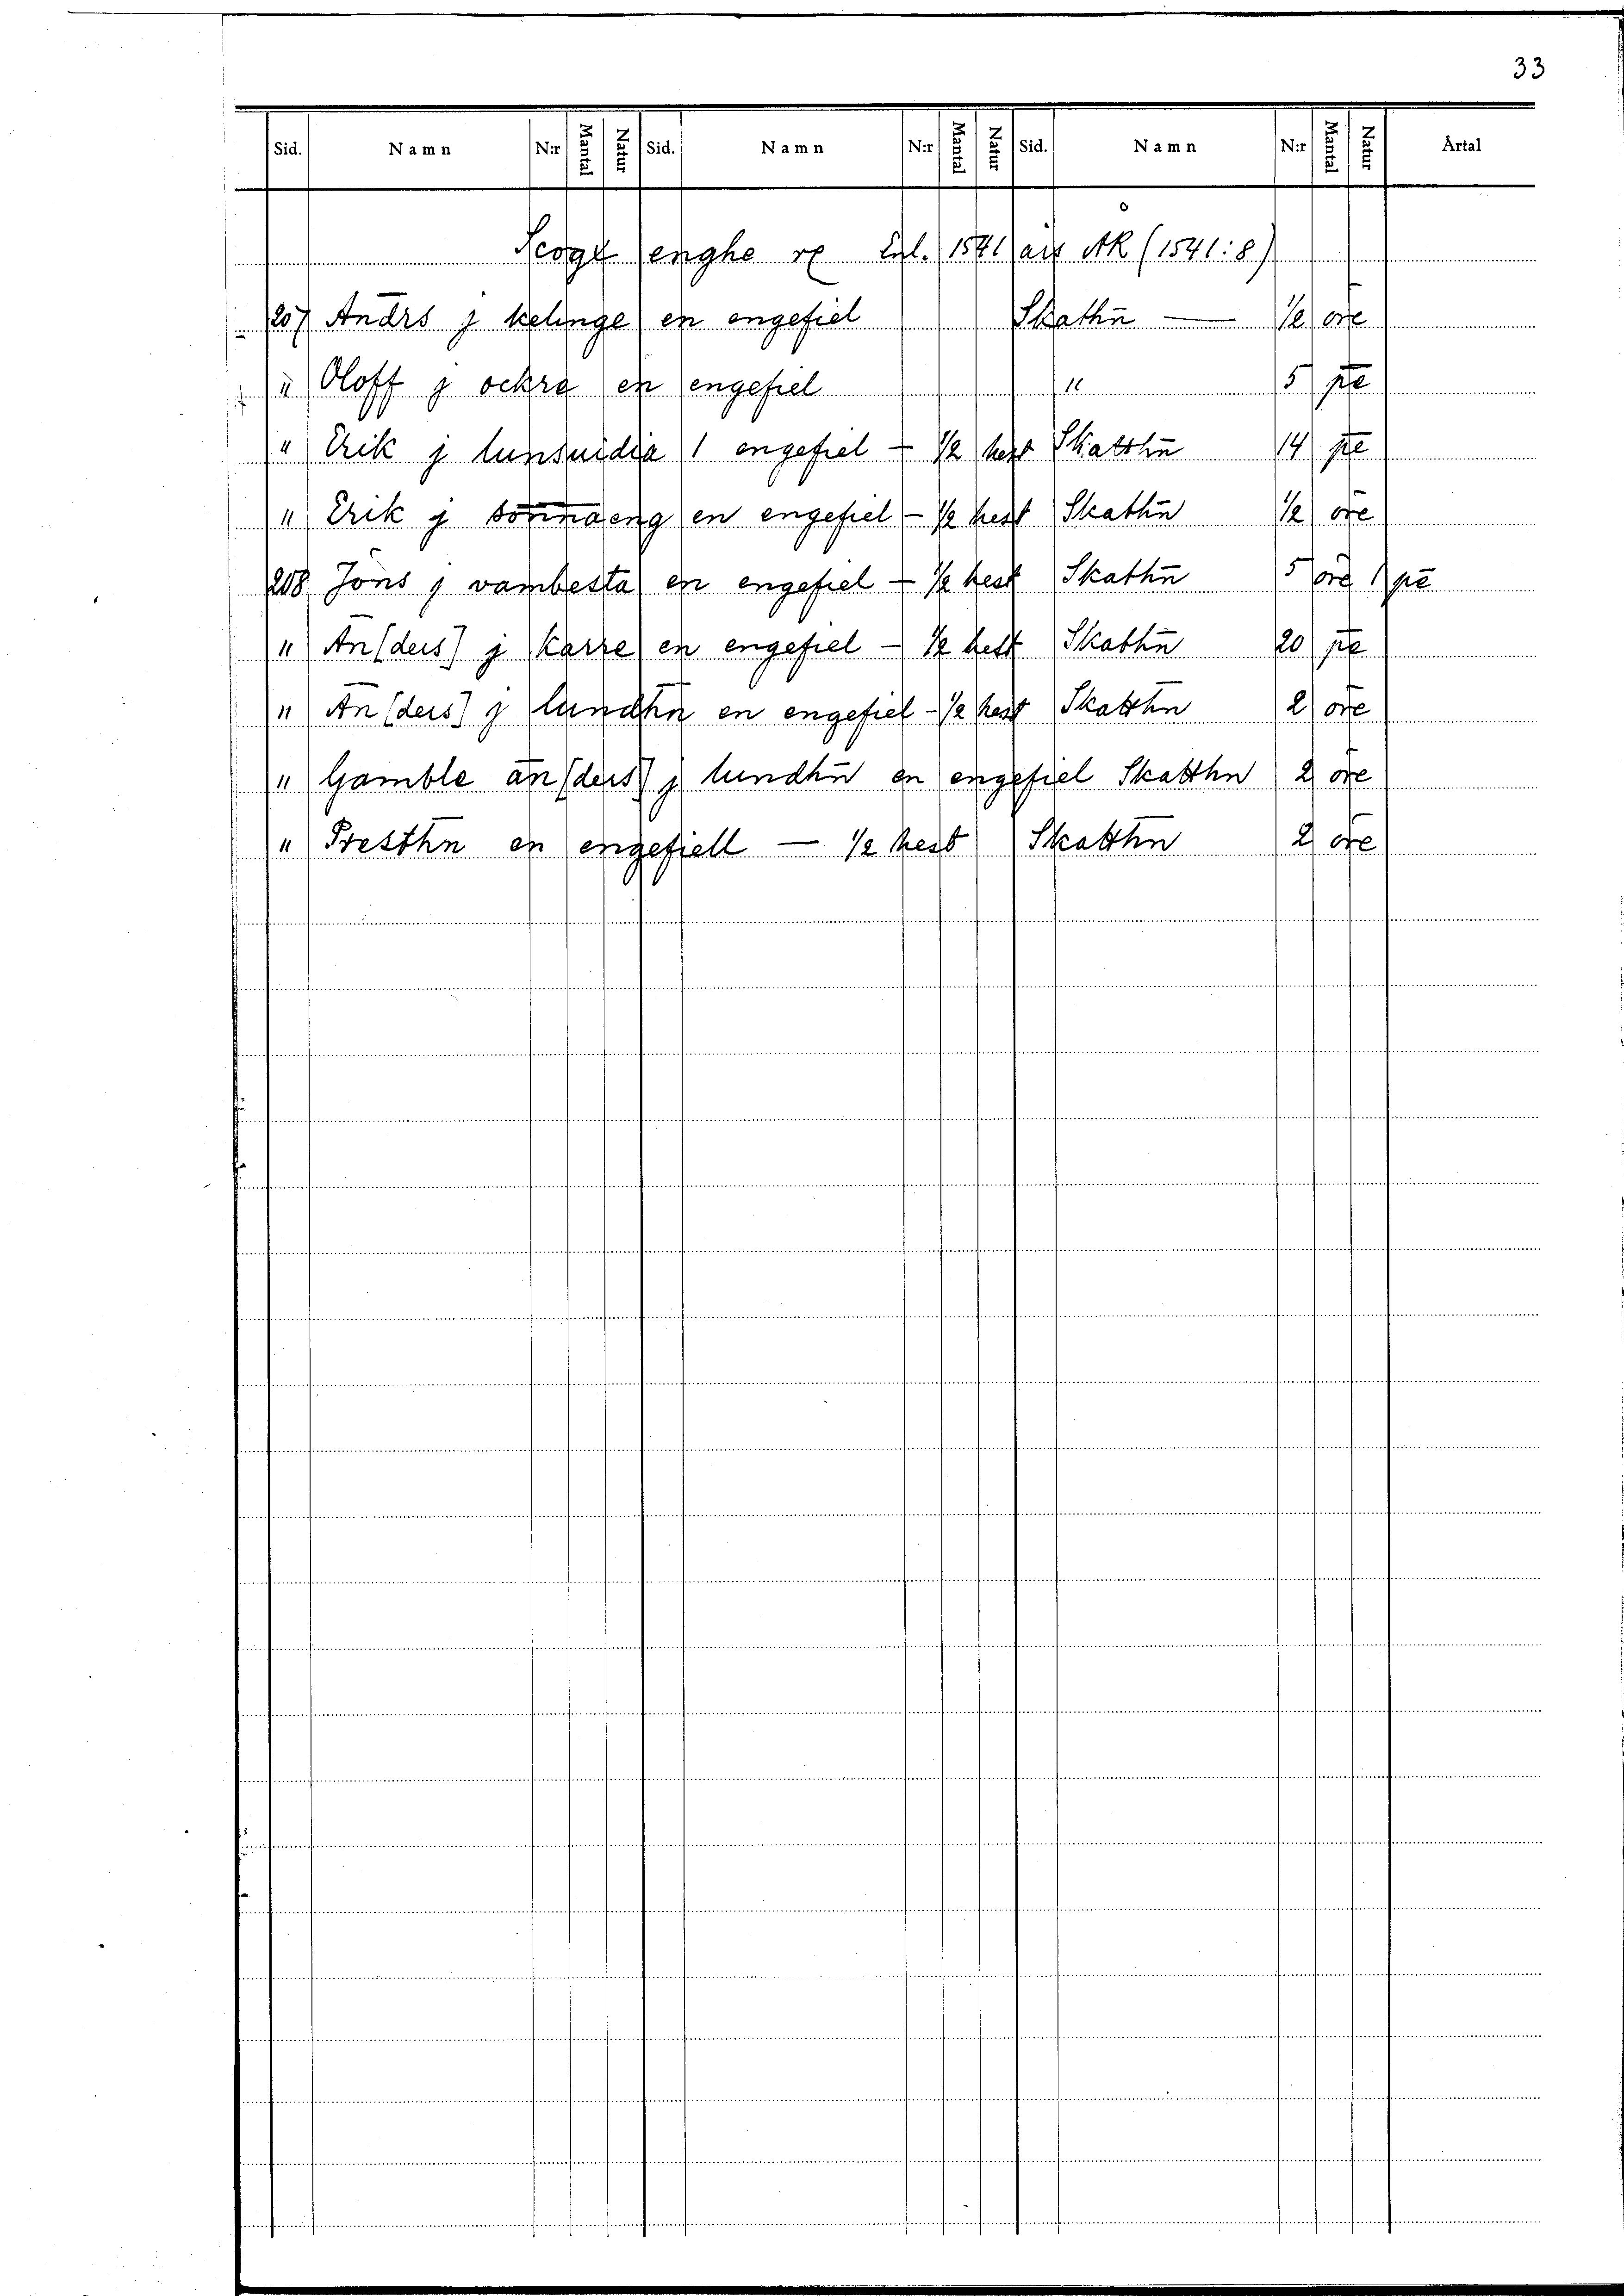 33
Sid. Namn N:r Mantal Natur Sid. Namn N:r Mantal Natur Sid. Namn N:r Mantal Natur Årtal
enghe Enl. 1541 års ÅK (1541:8)
207 Andrs j kelinge en engefiel Skathn̄ — 1/2 öre
" Oloff j ockra en engefiel " 5 pē
" Erik j lunsuidia 1 engefiel - 1/2 hest Skatthn̄ 14 pē
" Erik j en engefiel - 1/2 hest Skathn̄ 1/2 öre
208 Jöns j vambesta en engefiel - 1/2 hest Skathn̄ 5 öre 1 pē
" An̄[ders] j Karre en engefiel - 1/2 hest Skathn̄ 20 pē
" An̄[ders] j lundhn̄ en engefiel - 1/2 hest Skatthn 2 öre
" Gamble an̄[ders] j lundhn̄ en engefiel Skatthn 2 öre
" Presthn en engefiell — 1/2 hest Skatthn 2 öre